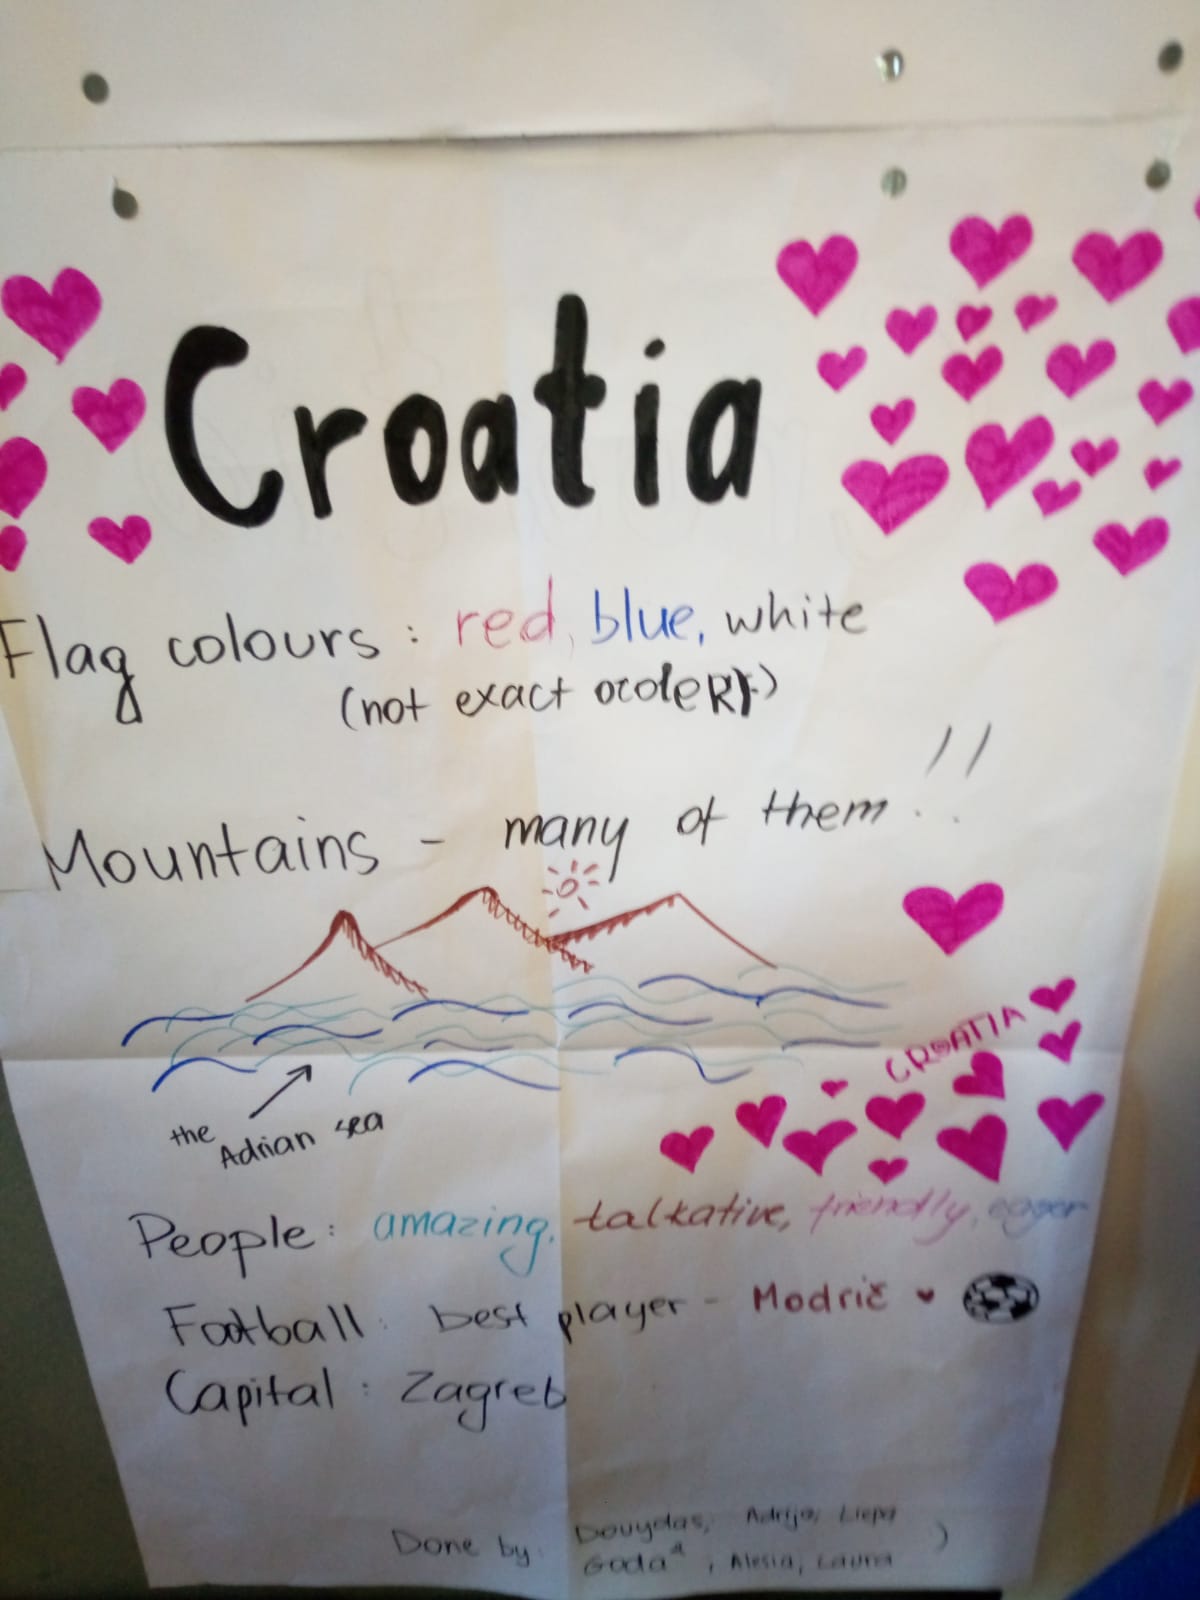 Croatia
Flag colours : red, blue, white
(not exact order)
Mountains - many of them !!
the Adrian sea
CROATIA
People : amazing, talkative, friendly, eager
Football : best player - Modrič
Capital : Zagreb
Done by : Dovydas, Adrija, Liepa
Goda , Alesia, Laura )